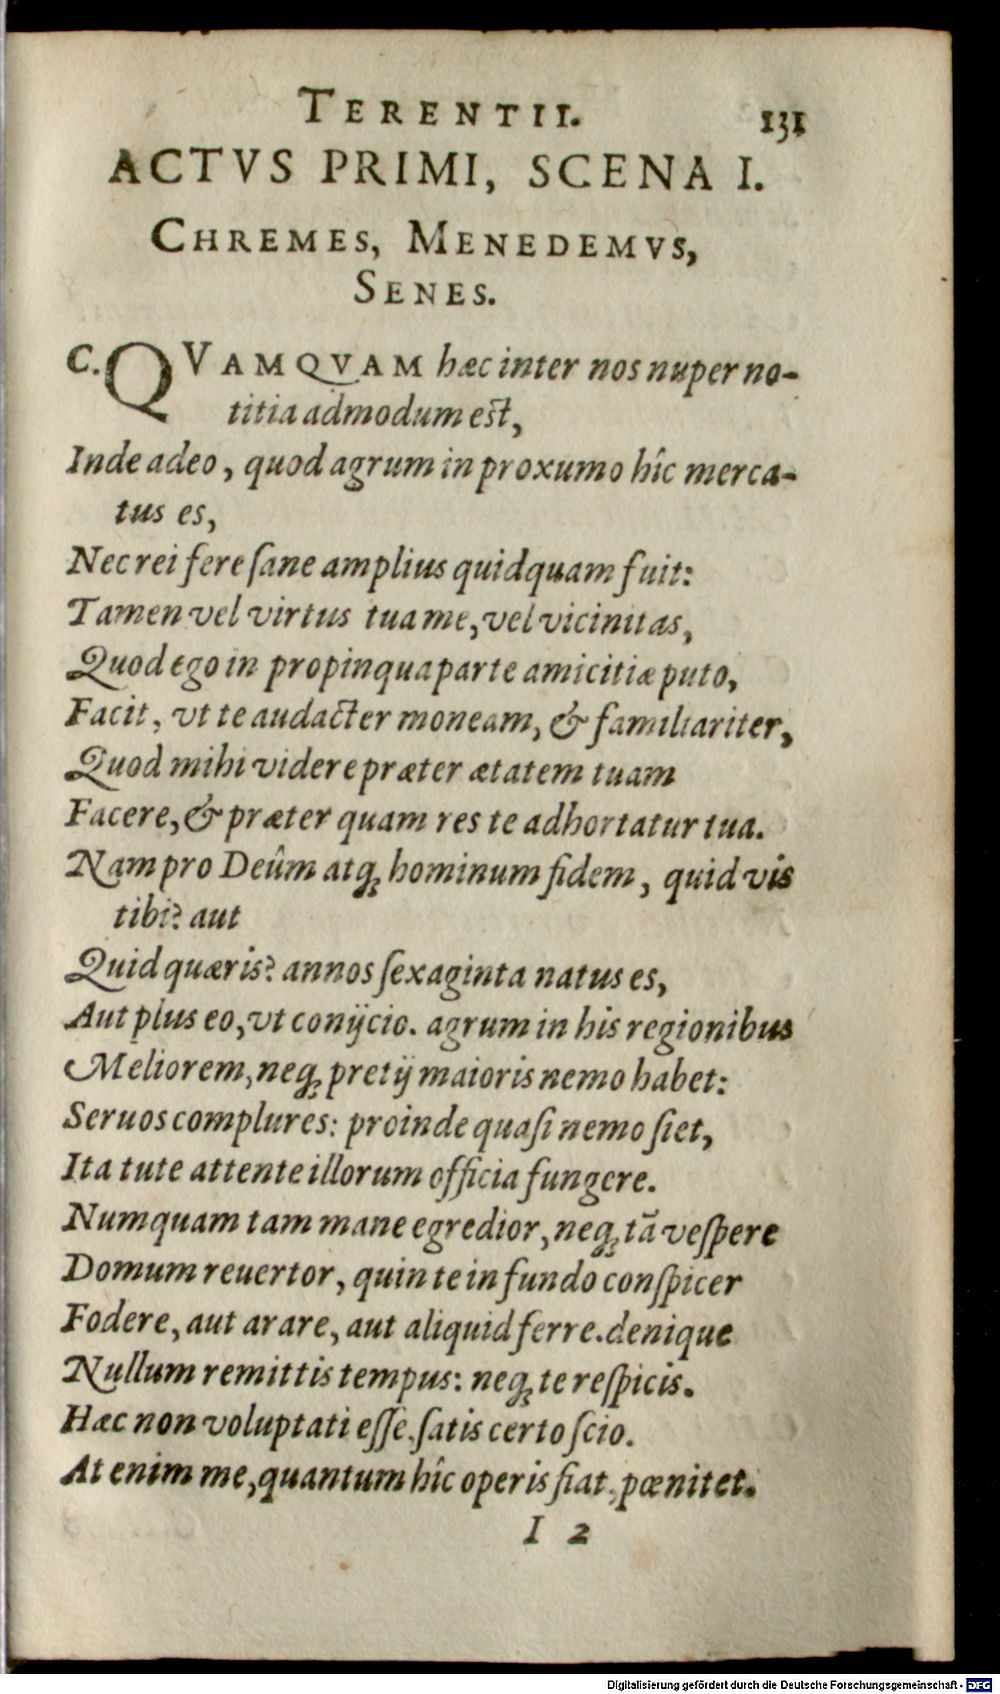 TERENTII. 131
ACTVS PRIMI, SCENA I.
CHREMES, MENEDEMVS,
SENES.
C. QVAMQVAM hæc inter nos nuper no-
titia admodum est,
Inde adeo, quod agrum in proxumo hîc merca-
tus es,
Nec rei fere ſane amplius quidquam fuit:
Tamen vel virtus tua me, vel vicinitas,
Quod ego in propinqua parte amicitiæ puto,
Facit, vt te audacter moneam, & familiariter,
Quod mihi videre præter ætatem tuam
Facere, & præter quam res te adhortatur tua.
Nam pro Deûm atq; hominum fidem, quid vis
tibi? aut
Quid quæris? annos ſexaginta natus es,
Aut plus eo, vt conijcio. agrum in his regionibus
Meliorem, neq; pretij maioris nemo habet:
Seruos complures: proinde quaſi nemo ſiet,
Ita tute attente illorum officia fungere.
Numquam tam mane egredior, neq; tā veſpere
Domum reuertor, quin te in fundo conſpicer
Fodere, aut arare, aut aliquid ferre. denique
Nullum remittis tempus: neq; te reſpicis.
Hæc non voluptati eſſe. ſatis certo ſcio.
At enim me, quantum hîc operis fiat, pœnitet.
I 2
Digitalisierung gefördert durch die Deutsche Forschungsgemeinschaft - DFG